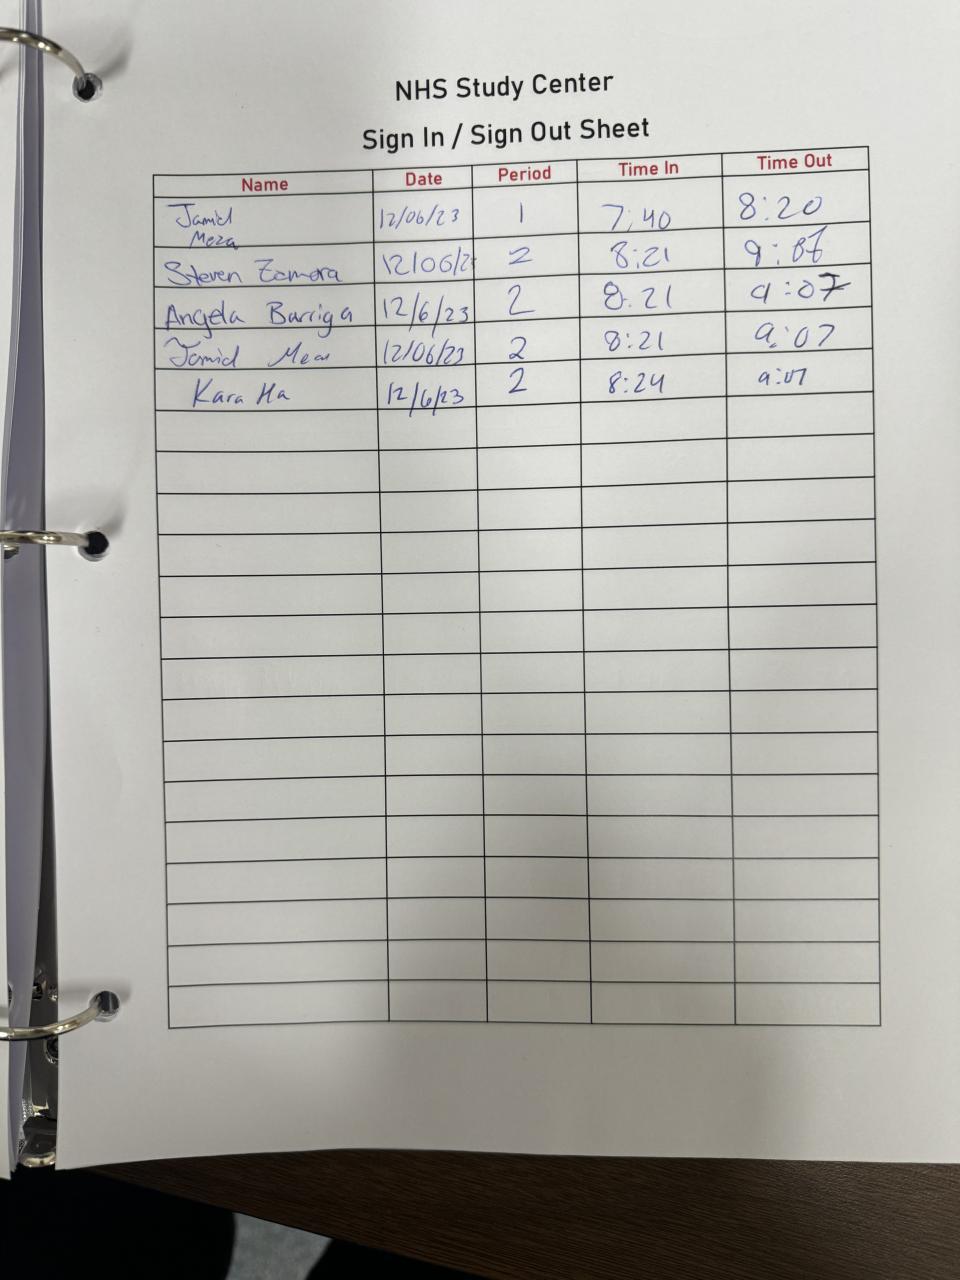 NHS Study Center
Sign In / Sign Out Sheet
Name Date Period Time In Time Out
Jamid 12/06/23 1 7:40 8:20
Meza
Steven Zamora 12/06/2 2 8:21 9:07
Angela Barriga 12/6/23 2 8:21 9:07
Jamid 12/06/23 2 8:21 9:07
Kara Ha 12/6/23 2 8:24 9:07